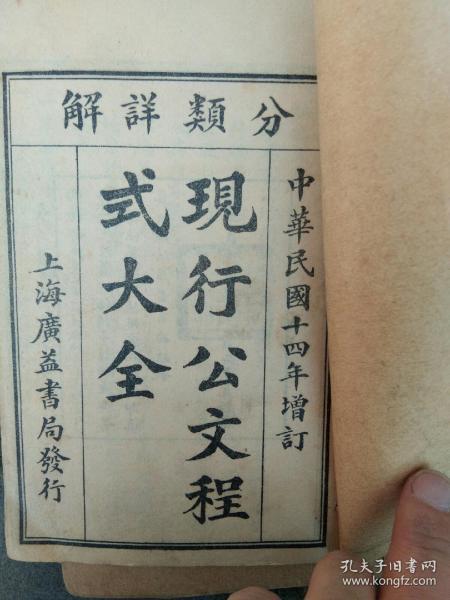 分類詳解
中華民國十四年增訂
現行公文程
式大全
上海廣益書局發行
孔夫子旧书网
www.kongfz.com